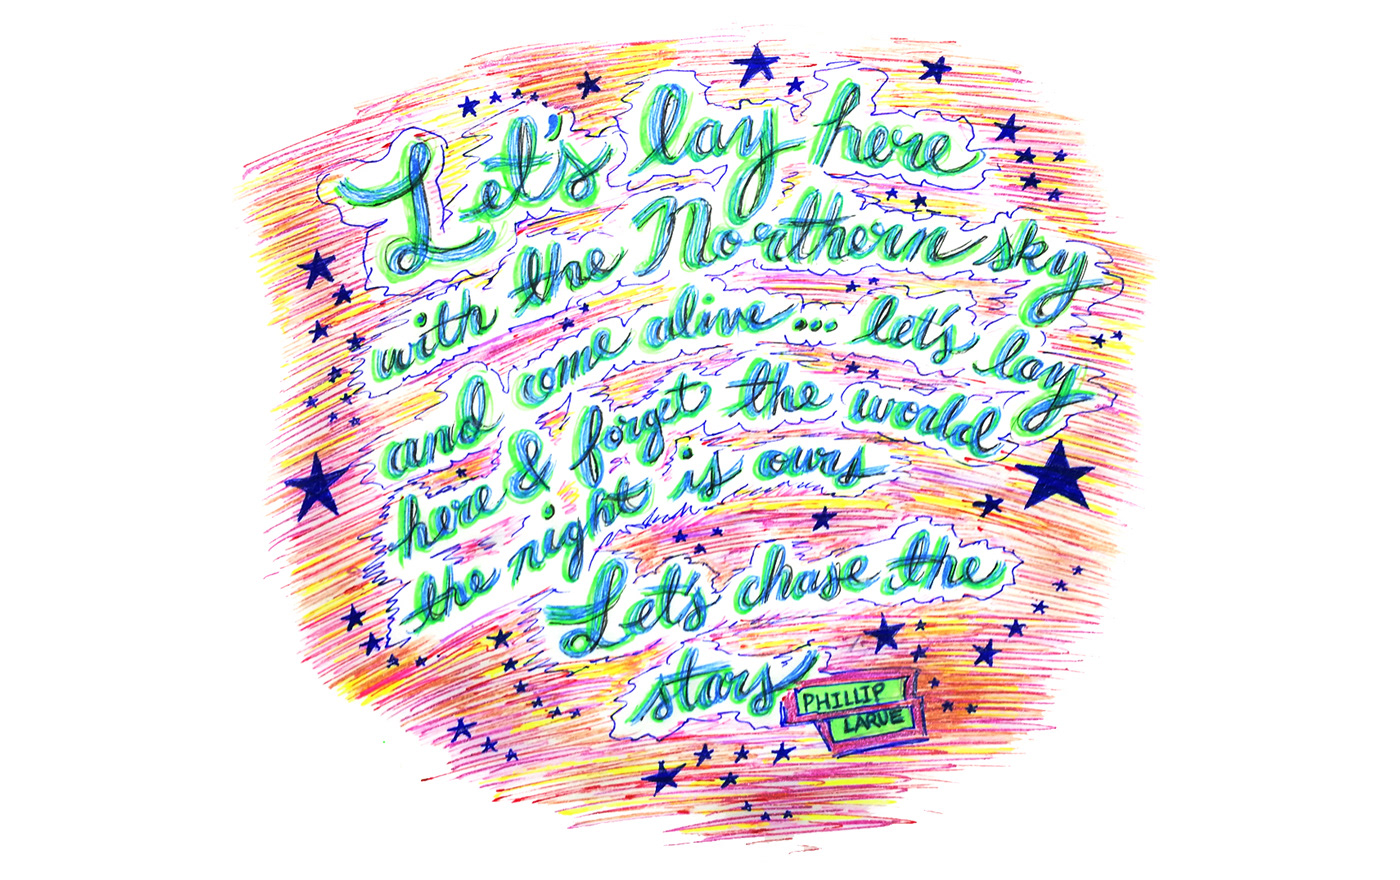 Let's lay here
with the Northern sky
and come alive... let's lay
here & forget the world
the night is ours
Let's chase the
stars
PHILLIP
LARUE